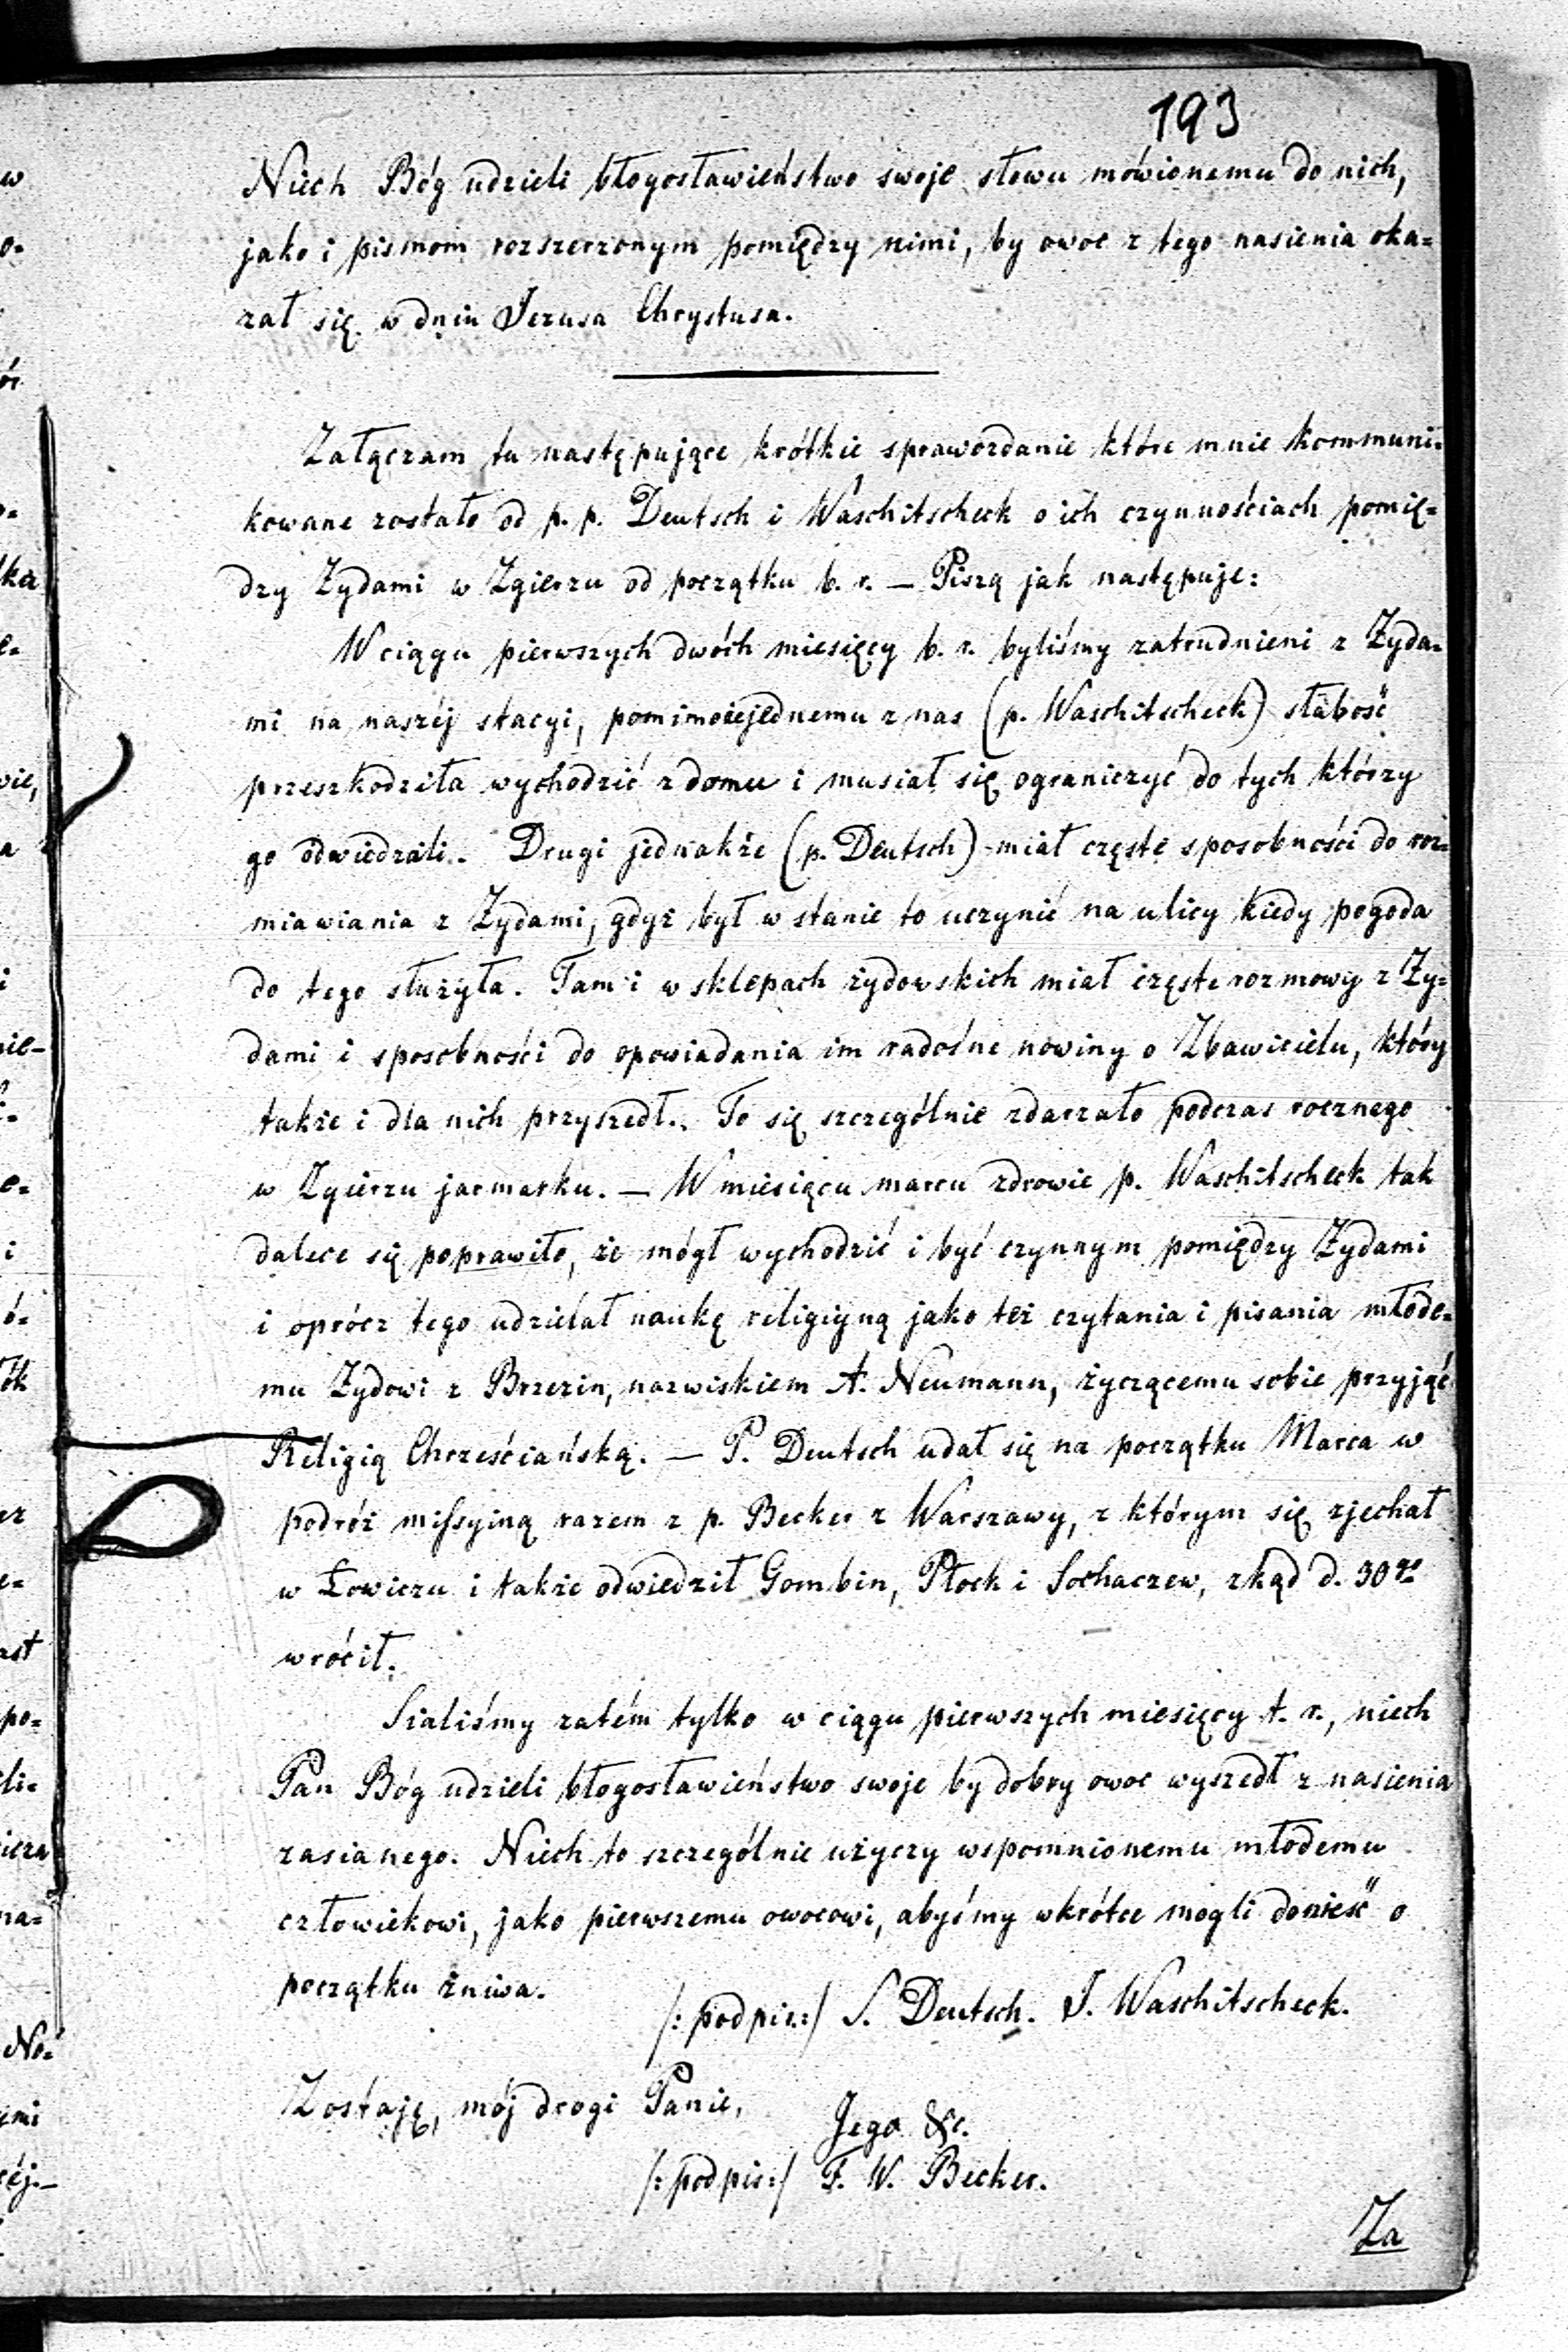 193
Niech Bóg udzieli błogosławieństwo swoje słowu mówionemu do nich,
jako i pismom rozszerzonym pomiędzy nimi, by owoc z tego nasienia oka=
zał się w dniu Jezusa Chrystusa.
Załączam tu następujące krótkie sprawozdanie które mnie kommuni=
kowane zostało od p. p. Deutsch i Waschitscheck o ich czynnościach pomię=
dzy Żydami w Zgierzu od początku b. r. — Piszą jak następuje:
W ciągu pierwszych dwóch miesięcy b. r. byliśmy zatrudnieni z Żyda=
mi na naszéj stacyi, pomimo że jednemu z nas (p. Waschitscheck) słabość
przeszkodziła wychodzić z domu i musiał się ograniczyć do tych którzy
go odwiedzali. Drugi jednakże (p. Deutsch) miał częste sposobności do roz=
miawiania z Żydami, gdyż był w stanie to uczynić na ulicy kiedy pogoda
do tego służyła. Tam i w sklepach żydowskich miał częste rozmowy z Ży=
dami i sposobności do opowiadania im radośne nowiny o Zbawicielu, który
także i dla nich przyszedł. To się szczególnie zdarzało podczas rocznego
w Zgierzu jarmarku. — W miesiącu marcu zdrowie p. Waschitscheck tak
dalece się poprawiło, że mógł wychodzić i być czynnym pomiędzy Żydami
i oprócz tego udzielał naukę religiyną jako też czytania i pisania młode=
mu Żydowi z Brzezin, nazwiskiem A. Neumann, życzącemu sobie przyjąć
Religią Chrześciańską. — P. Deutsch udał się na początku Marca w
podróż missyiną razem z p. Becker z Warszawy, z którym się zjechał
w Łowiczu i także odwiedził Gombin, Płock i Sochaczew, zkąd d. 30go
wrócił.
Sialiśmy zatém tylko w ciągu pierwszych miesięcy t. r., niech
Pan Bóg udzieli błogosławieństwo swoje by dobry owoc wyszedł z nasienia
zasianego. Niech to szczególnie użyczy wspomnionemu młodemu
człowiekowi, jako pierwszemu owocowi, abyśmy wkrótce mogli donieść o
początku żniwa.
/: podpis.:/ S. Deutsch. J. Waschitscheck.
Zostaję, mój drogi Panie,
Jego &c.
/: podpis:/ F. W. Becker.
Za